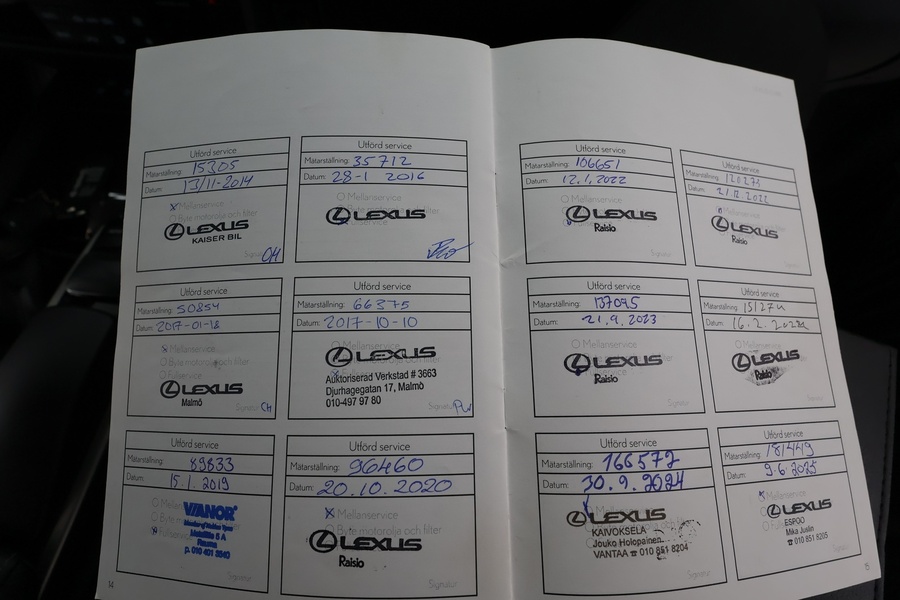 Utförd service
Mätarställning: 15305
Datum: 13/11-2014
X Mellanservice
Byte motorolja och filter
LEXUS
KAISER BIL
Signatur CH
Utförd service
Mätarställning: 35 712
Datum: 28-1 2016
Mellanservice
Byte motorolja och filter
LEXUS
Utförd service
Mätarställning: 50854
Datum: 2017-01-18
Mellanservice
Fullservice
LEXUS
Malmö
Signatur CH
Utförd service
Mätarställning: 66375
Datum: 2017-10-10
Mellanservice
LEXUS
Auktoriserad Verkstad # 3663
Djurhagegatan 17, Malmö
010-497 97 80
Signatur
Utförd service
Mätarställning: 89833
Datum: 15.1.2019
VIANOR
Rauma
p. 010 401 3540
Signatur
Utförd service
Mätarställning: 96460
Datum: 20.10.2020
X Mellanservice
Byte motorolja och filter
LEXUS
Raisio
Signatur
14
Utförd service
Mätarställning: 106651
Datum: 12.1.2022
LEXUS
Raisio
Utförd service
Mätarställning: 120273
Datum: 21.12.2022
Mellanservice
LEXUS
Raisio
Signatur
Utförd service
Mätarställning: 137095
Datum: 21.9.2023
Mellanservice
LEXUS
Raisio
Signatur
Utförd service
Mätarställning:
Datum: 16.2.
Mellanservice
LEXUS
Raisio
Signatur
Utförd service
Mätarställning: 166572
Datum: 30.9.2024
LEXUS
KAIVOKSELA
Jouko Holopainen
VANTAA ☎ 010 851 8204
Signatur
Utförd service
Mätarställning: 181449
Datum: 9.6.2025
Mellanservice
LEXUS
ESPOO
Mika Juslin
☎ 010 851 8205
Signatur
15